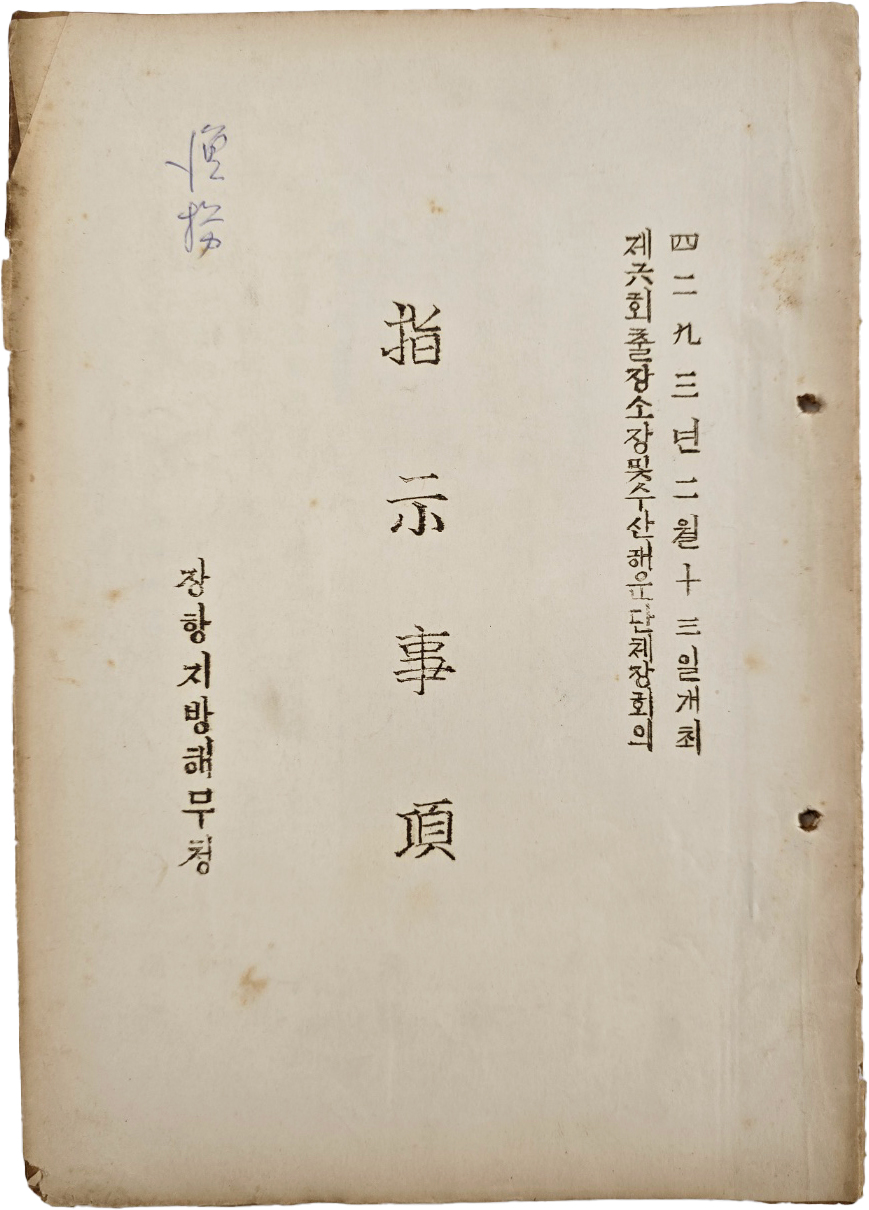 四二九三년二월十三일개최
제六회출장소장및수산해운단체장회의
指示事項
장항지방해무청